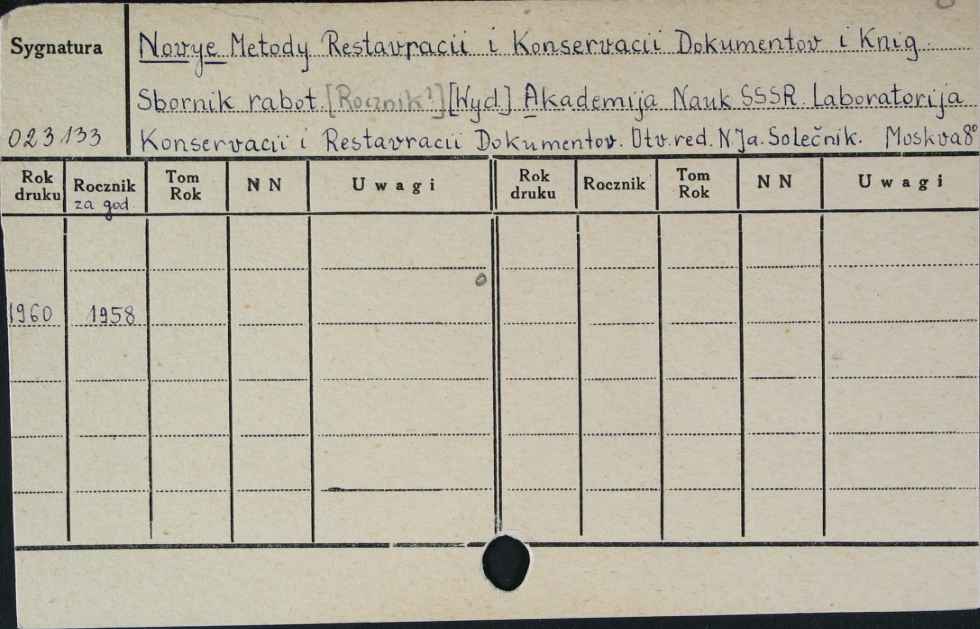 Sygnatura
Novye Metody Restavracii i Konservacii Dokumentov i Knig.
Sbornik rabot. [Rocznik¹] [Wyd.] Akademija Nauk SSSR. Laboratorija
023133
Konservacii i Restavracii Dokumentov. Otv. red. N Ja. Solečnik. Moskva 8°
Rok druku Rocznik za god Tom Rok N N Uwagi Rok druku Rocznik Tom Rok N N Uwagi
1960 1958